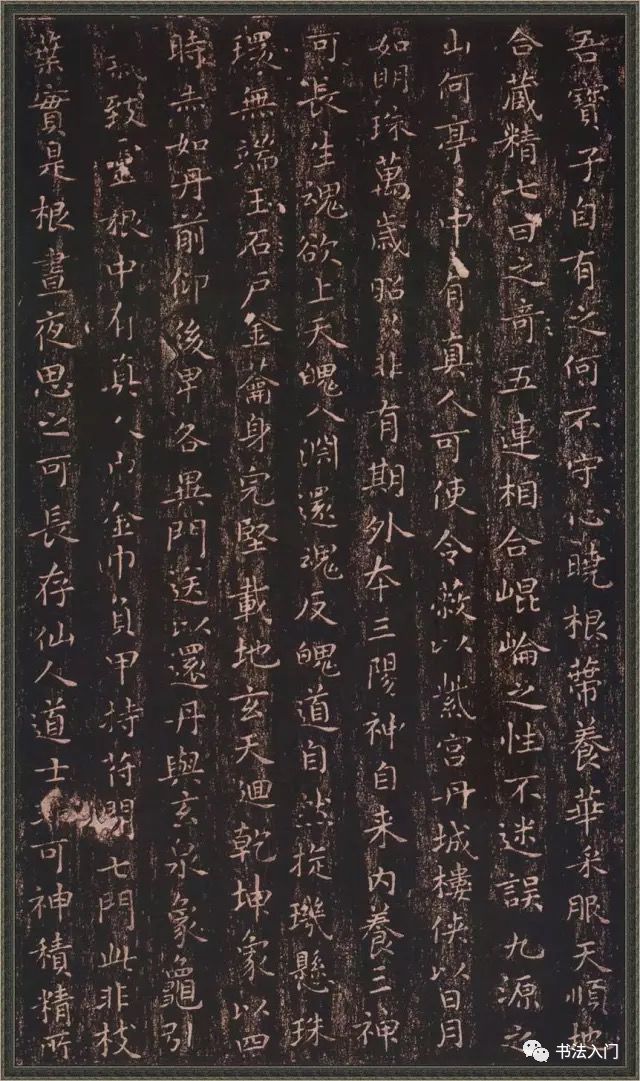 吾寶子自有之何不守心曉根蔕養華采服天順地
合藏精七日之奇五連相合崐崘之性不迷誤九源之
山何亭〻中有真人可使令蔽以紫宮丹城樓俠以日月
如明珠萬歲昭〻非有期外本三陽神自来内養三神
可長生魂欲上天魄入淵還魂反魄道自然㨁璣懸珠
環無端玉石戶金籥身完堅載地玄天迴乾坤象以四
時赤如丹前仰後卑各異門送以還丹與玄泉象龜引
氣致靈根中有真人巾金巾負甲持符開七門此非枝
葉實是根晝夜思之可長存仙人道士非可神積精所
书法入门